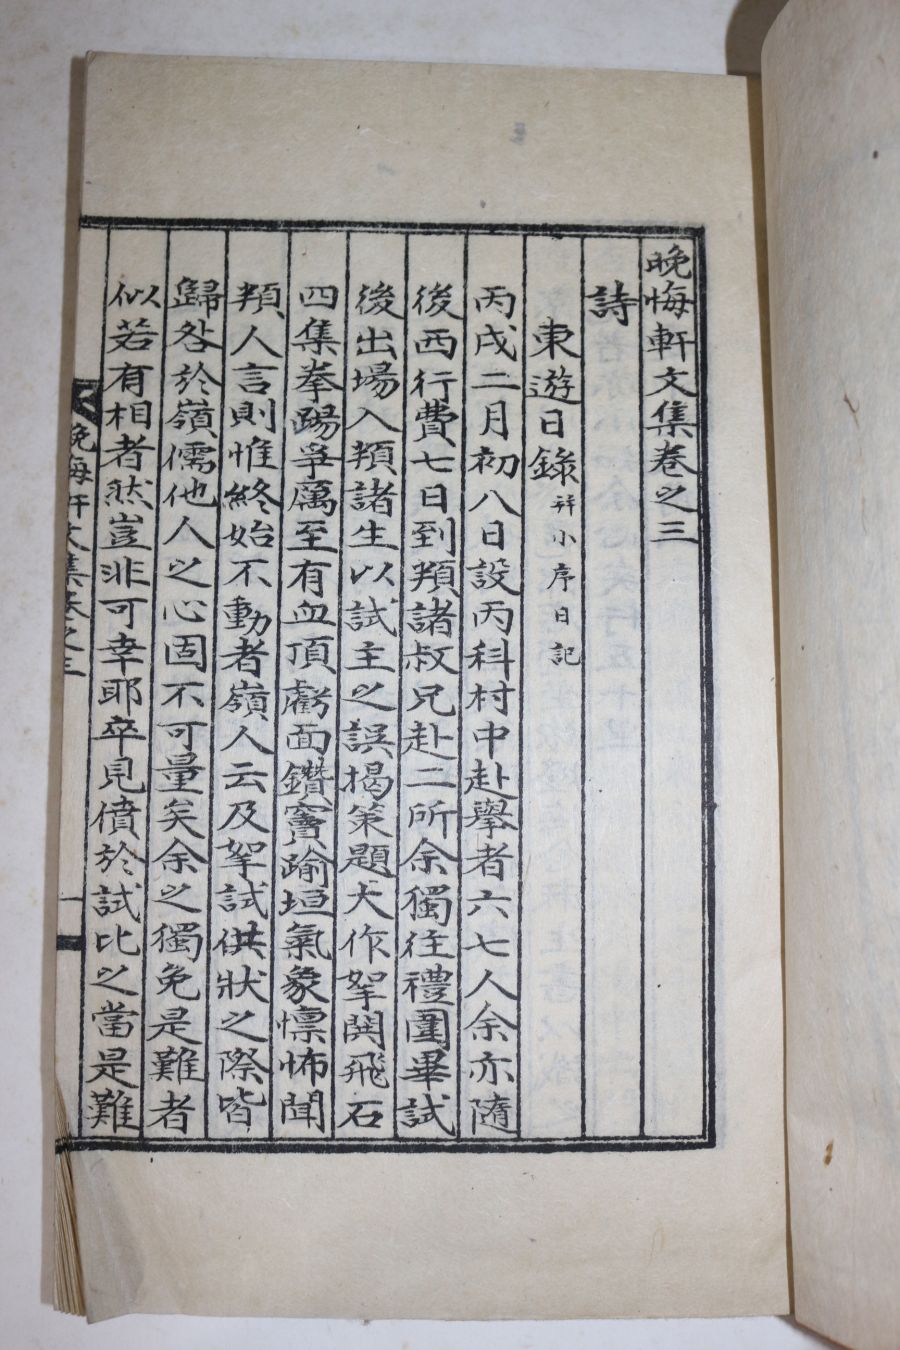 晚悔軒文集卷之三
詩
東遊日錄 幷小序日記
丙戌二月初八日設丙科村中赴擧者六七人余亦隨
後西行費七日到頖諸叔兄赴二所余獨往禮圍畢試
後出場入頖諸生以試主之誤揭策題大作拏鬨飛石
四集拳踢爭厲至有血頂虧面鑽竇踰垣氣象懍怖聞
頖人言則惟終始不動者嶺人云及拏試供狀之際皆
歸咎於嶺儒他人之心固不可量矣余之獨免是難者
似若有相者然豈非可幸耶卒見僨於試比之當是難
晚悔軒文集卷之三
一